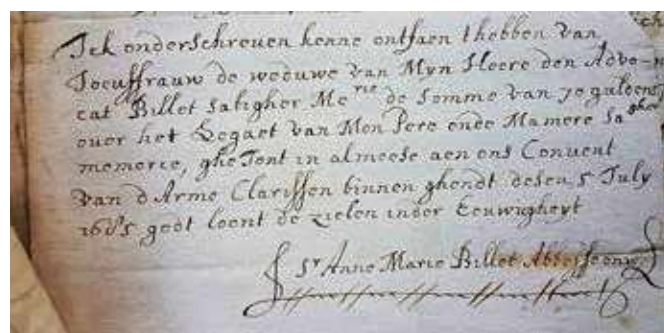 Ick onderschreven kenne ontfaen thebben van
Joeuffrauw de weduwe van Myn Heere den Advo-
cat Billet saligher Me^rie de somme van 70 guldens
over het Legaet van Mon Pere ende Mamere sa^gher
memorie, ghejont in almoese aen ons Convent
van d Arme Clarissen binnen ghendt desen 5 July
godt loont de zielen inder Eeuwigheyt
S^r Anne Marie Billet Abbesse